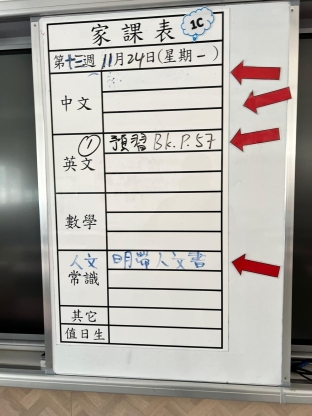 家課表 1C
第十三週 11月24日(星期一)
中文
① 預習 Bk. P.57
英文
數學
人文 明帶人文書
常識
其它
值日生